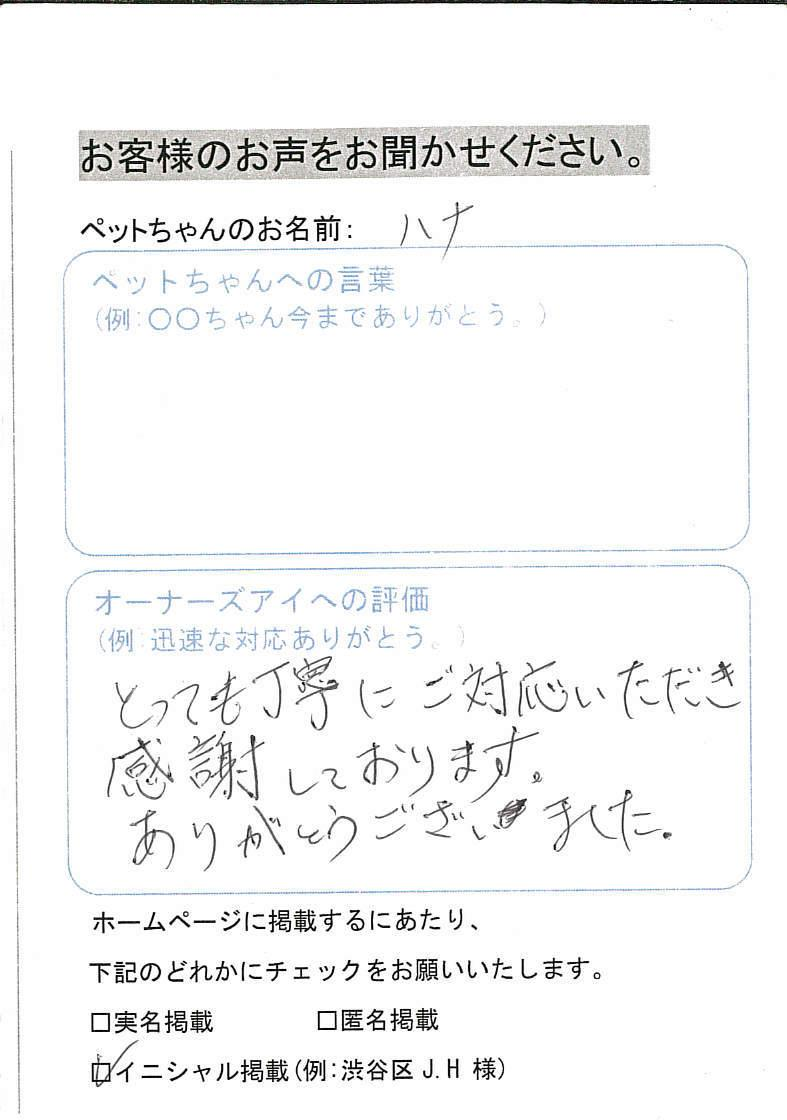 お客様のお声をお聞かせください。
ペットちゃんのお名前: ハナ
ペットちゃんへの言葉
(例:〇〇ちゃん今までありがとう。)
オーナーズアイへの評価
(例:迅速な対応ありがとう。)
とっても丁寧にご対応いただき
感謝しております。
ありがとうございました。
ホームページに掲載するにあたり、
下記のどれかにチェックをお願いいたします。
□実名掲載 □匿名掲載
☑イニシャル掲載(例:渋谷区 J.H 様)